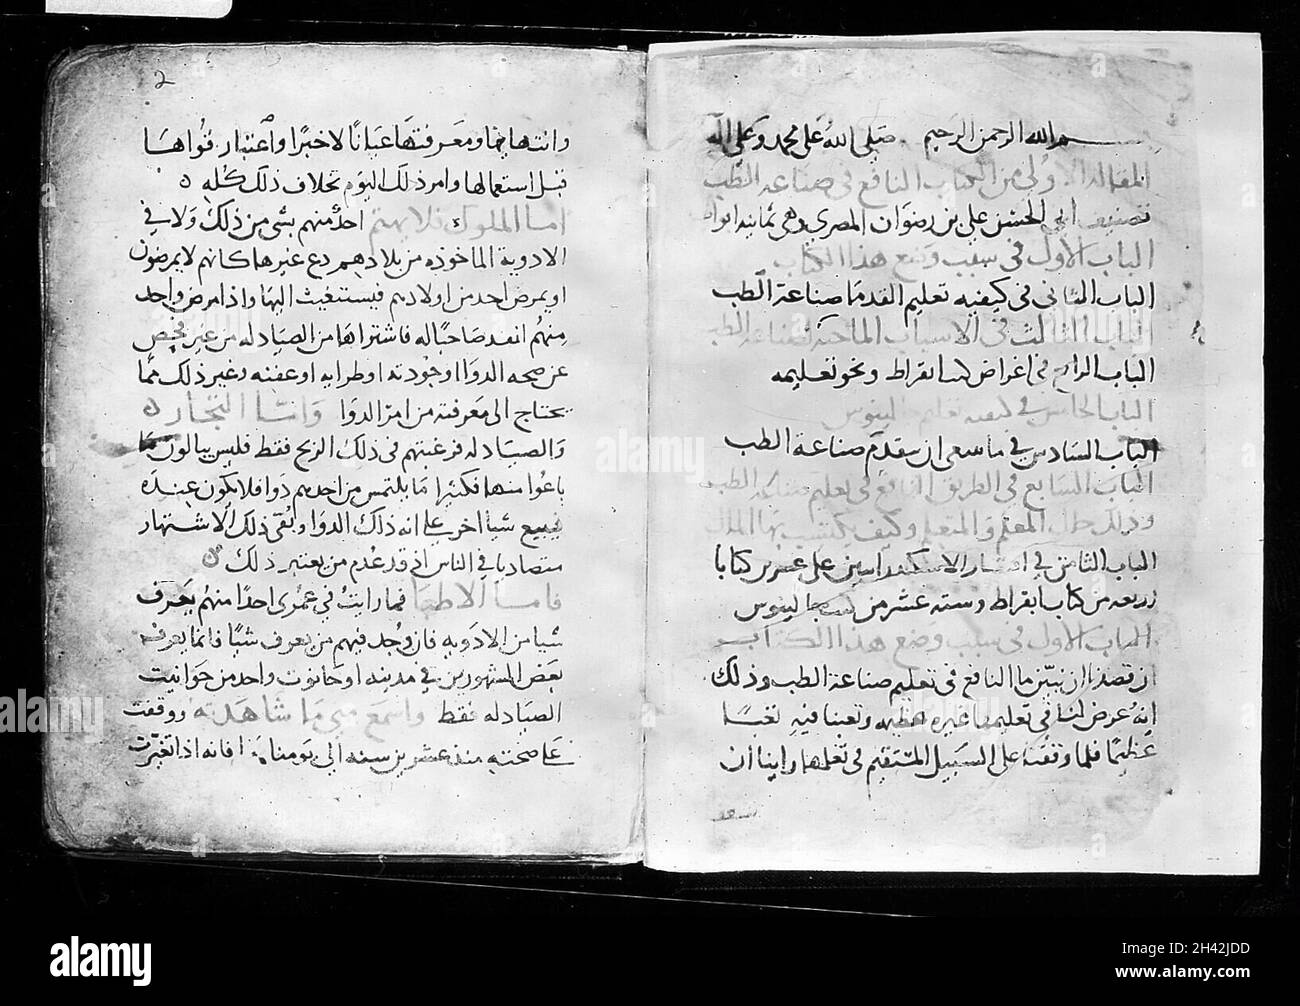 بسم الله الرحمن الرحيم صلى الله على محمد وعلى اله
المقاله الاولى من الكتاب النافع فى صناعة الطب
تصنيف ابى الحسن على بن رضوان المصرى وهى ثمانيه ابواب
الباب الاول فى سبب وضع هذا الكتاب
الباب الثانى فى كيفيه تعليم القدما صناعة الطب
الباب الثالث فى الاسباب الماحقة لصناعة الطب
الباب الرابع فى اغراض كتب ابقراط ونحو تعليمه
الباب الخامس فى كيفيه تعليم جالينوس
الباب السادس فى ما ينبغى ان يتقدم صناعة الطب
الباب السابع فى الطريق النافع فى تعليم صناعة الطب
وذلك حال المعلم والمتعلم وكيف يكتسب بها المال
الباب الثامن فى اقتصار الاسكندرانيين على عشرين كتابا
اربعه من كتب ابقراط وسته عشر من كتب جالينوس
الباب الاول فى سبب وضع هذا الكتاب
ان قصدنا ان نبين ما النافع فى تعليم صناعة الطب وذلك
انه عرض لنا فى تعليمها حيره عظيمه وتعبنا فيه تعبا
عظيما فلما وقفت على السبيل المستقيم فى تعلمها راينا ان
2
وانتهايها ومعرفتها عيانا لا خبرا واعتبار قواها
قبل استعمالها وامر ذلك اليوم بخلاف ذلك كله
اما الملوك فلا يهتم احد منهم بشى من ذلك ولا فى
الادوية الماخوذه من بلادهم دع غيرها كانهم لا يمرضون
او يمرض احد من اولادهم فيستغيث اليها واذا مرض واحد
منهم انفد صاحبا له فاشتراها من الصيادله من غير فحص
عن صحه الدوا او جودته او طرايه او عفنه وغير ذلك مما
يحتاج الى معرفته من امر الدوا واما التجار
والصيادله فرغبتهم فى ذلك الربح فقط فليس يبالون ما
باعوا منها فكثيرا ما يلتمس من احدهم دوا فلا يكون عنده
فيبيع شيا اخر على انه ذلك الدوا وبقى ذلك الاشتهار
متصاديا فى الناس اذ قد عدم من يعتبر ذلك
فاما الاطبا فما رايت فى عمرى احدا منهم يعرف
شيا من الادويه فان وجد فيهم من يعرف شيا فانما يعرفه
بعض المشهورين فى مدينه او حانوت واحد من حوانيت
الصيادله فقط واسمع منى ما شاهدته ووقفت
على صحته منذ عشرين سنه الى يومنا هذا فانه اذا تغيرت
alamy
alamy
Image ID: 2H42JDD
www.alamy.com